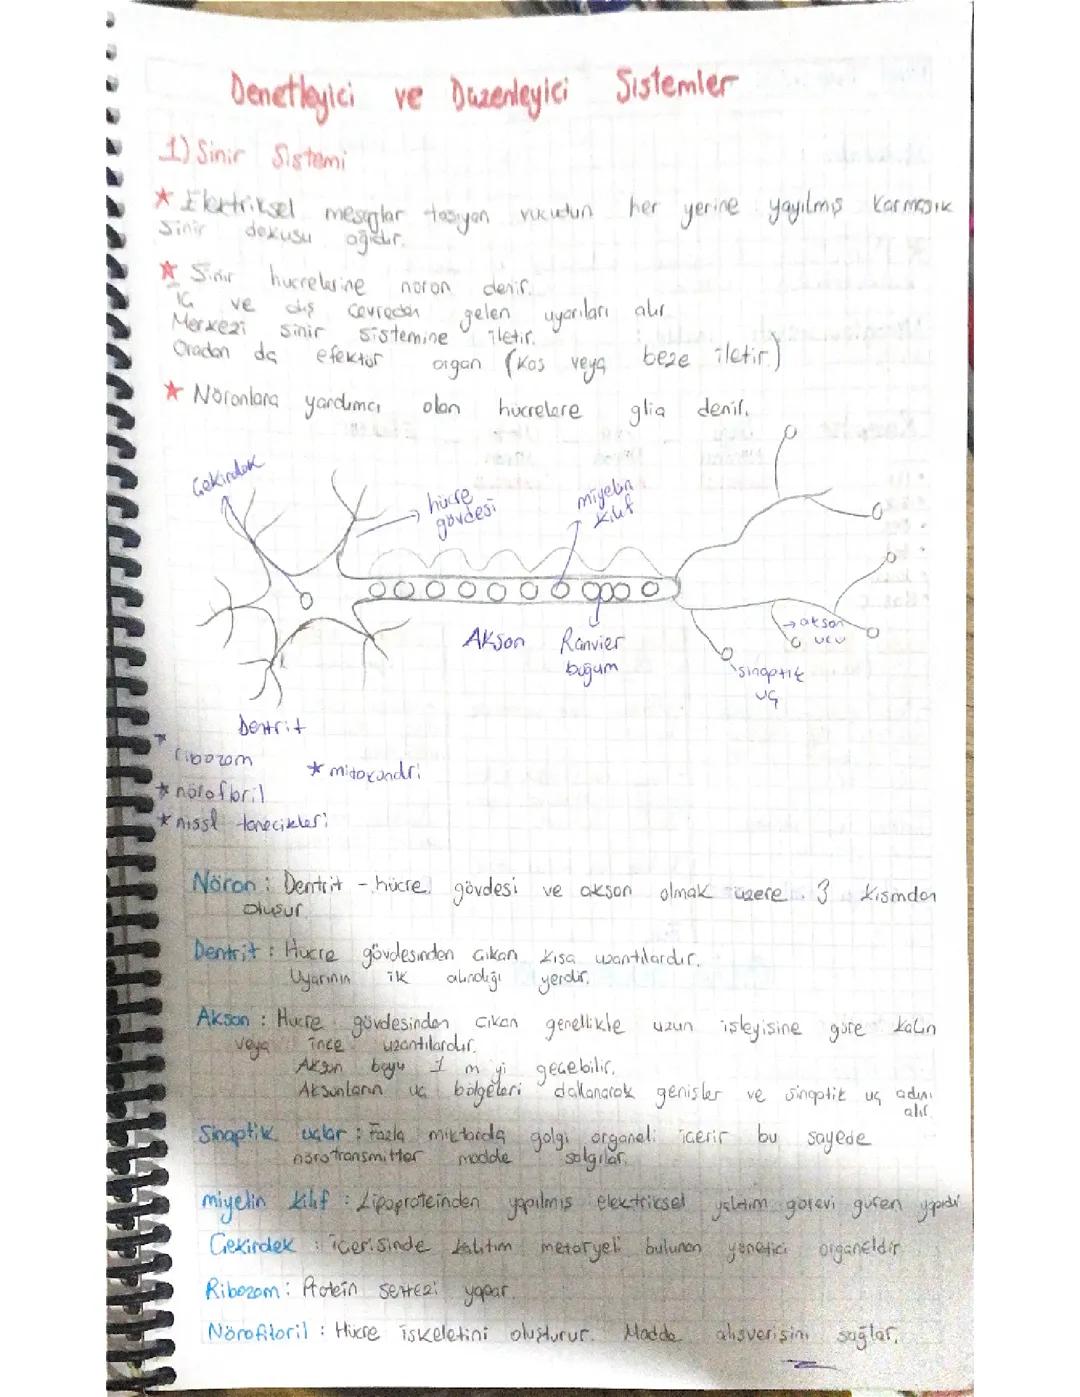 Denetleyici ve Düzenleyici Sistemler
1) Sinir Sistemi
* Elektriksel mesajlar taşıyan vücudun her yerine yayılmış karmaşık
Sinir dokusu ağıdır.
* Sinir hücrelerine nöron denir.
İç ve dış çevreden gelen uyarıları alır
Merkezi sinir sistemine iletir.
Oradan da efektör organ (Kas veya beze iletir.)
* Nöronlara yardımcı olan hücrelere glia denir.
Çekirdek
hücre
gövdesi
miyelin
kılıf
Akson
Ranvier
boğum
→ akson
ucu
sinaptik
uç
Dentrit
* ribozom
* mitokondri
* nörofibril
* nissl tanecikleri
Nöron : Dentrit - hücre gövdesi ve akson olmak üzere 3 kısımdan
oluşur.
Dentrit : Hücre gövdesinden çıkan kısa uzantılardır.
Uyarının ilk alındığı yerdir.
Akson : Hücre gövdesinden çıkan genellikle uzun işleyişine göre kalın
veya ince uzantılardır.
Akson boyu 1 m yi geçebilir.
Aksonların uç bölgeleri dallanarak genişler ve sinaptik uç adını
alır.
Sinaptik uçlar : Fazla miktarda golgi organeli içerir bu sayede
nörotransmitter madde salgılar.
miyelin kılıf : Lipoproteinden yapılmış elektriksel yalıtım görevi gören yapıdır
Çekirdek : içerisinde kalıtım metaryeli bulunan yönetici organeldir
Ribozom : Protein sentezi yapar
Nörofibril : Hücre iskeletini oluşturur. Madde alışverişini sağlar.